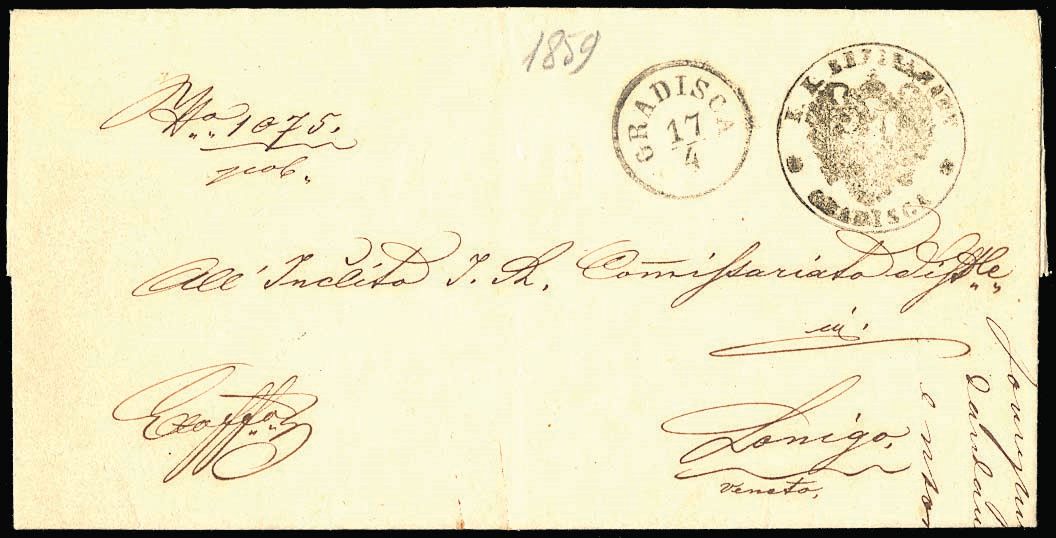 1859
No 1075.
GRADISCA
17
4
K. K. BEZIRKSAMT
GRADISCA
All' Inclito I. R. Commissariato Distle
in
Exoffo
Lonigo,
Veneto,